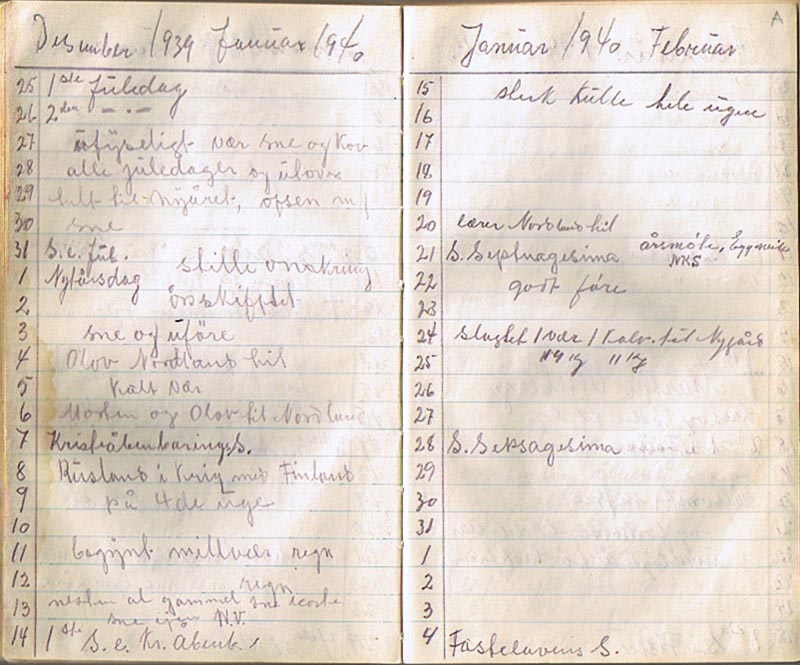 Desember 1939 Januar 1940
25 1ste Juledag
26 2den — · —
27 ufyseligt vær sne og
28 alle juledager og
29 til Nyåret,
30 sne
31 S. e. Jul.
1 Nytårsdag stille omkring
2 årsskiftet
3 sne og uføre
4 Olov Nordland hit
5 Kalt vær
6 Morten og Olov til Nordland
7 Kristi åbenbarings S.
8 Rusland i Krig med Finland
9 på 4de uge
10
11 begynt mildvær regn
12 regn
13 nesten al gammel sne
sne igjen N.V.
14 1ste S. e. Kr. Åbenb.
A
Januar 1940 Februar
15 sterk kulde hele ugen
16
17
18
19
20 lærer Nordland hit
21 S. Septuagesima årsmøte,
NKS
22 godt føre
23
24 slagtet 1 vær 1 Kalv til Nygård
25
26
27
28 S. Seksagesima
29
30
31
1
2
3
4 Fastelavens S.